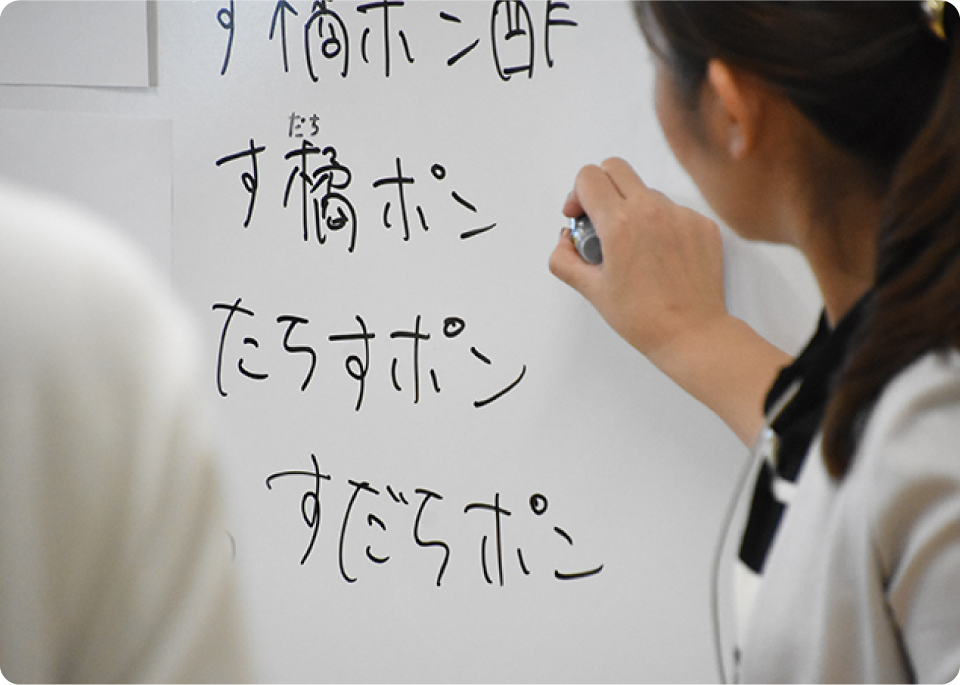 す橘ポン酢
だち
す橘ポン
たちすポン
すだちポン